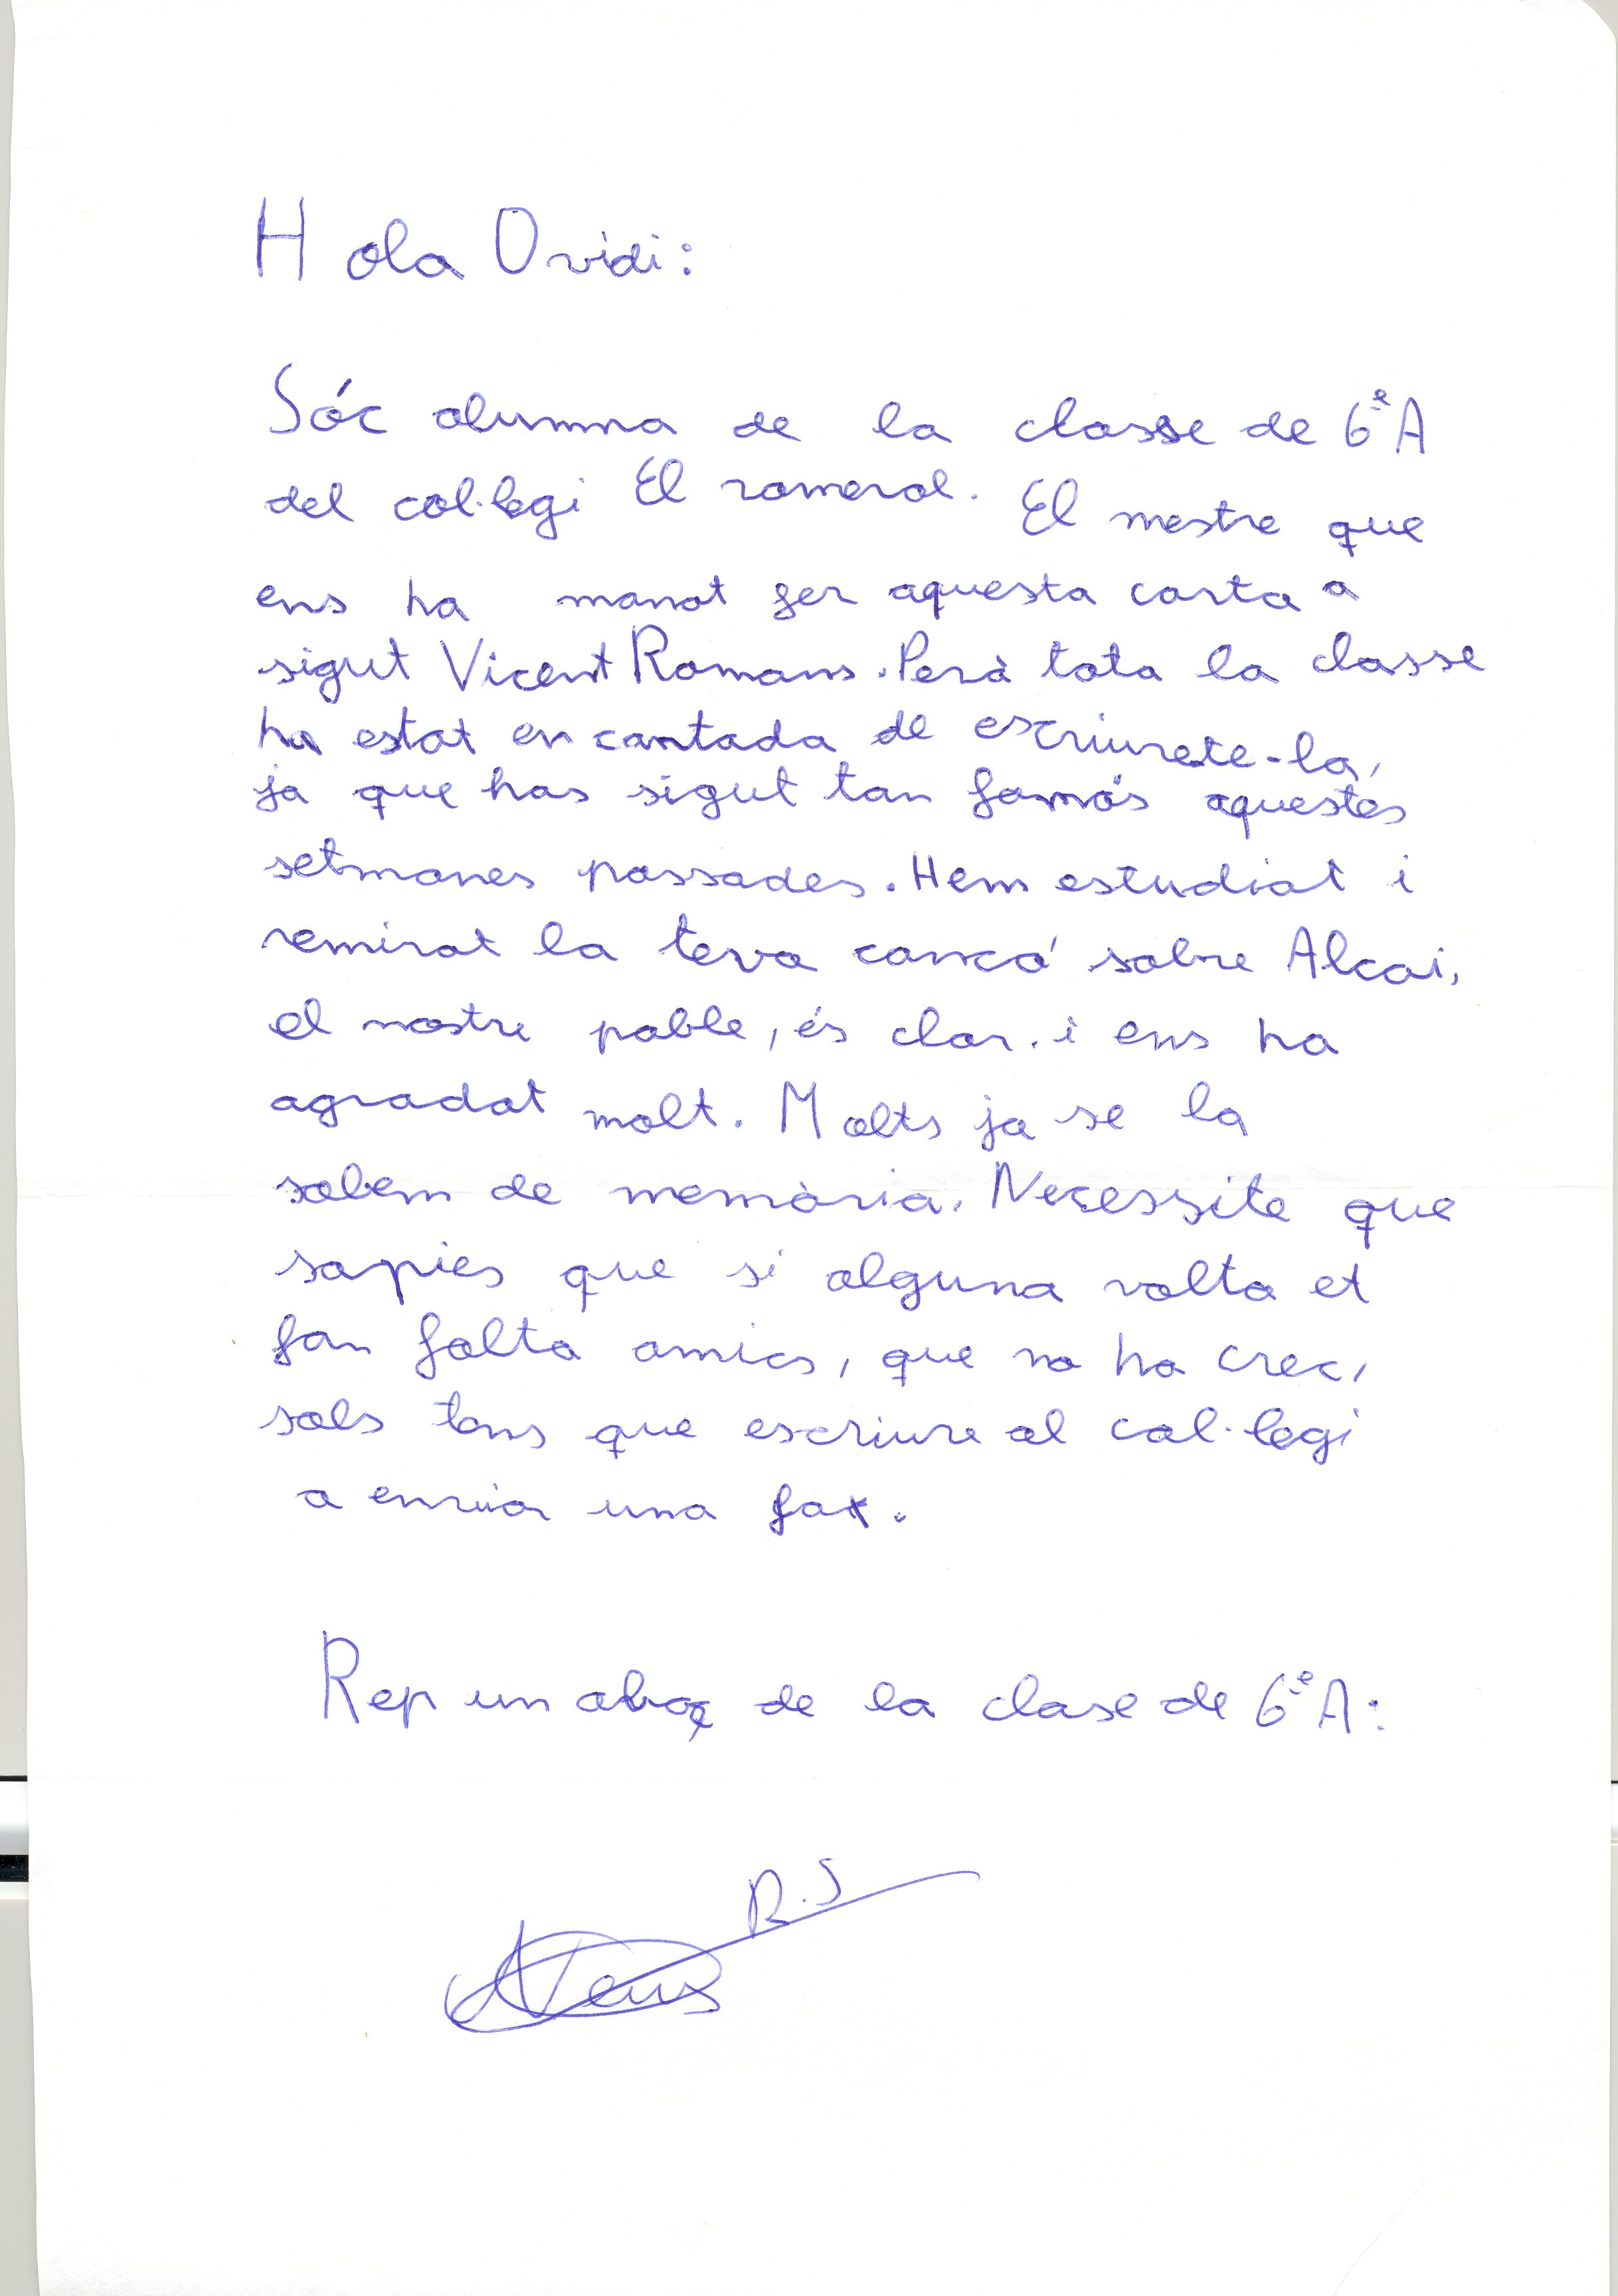 Hola Ovidi:
Sóc alumna de la classe de 6ªA
del col·legi El romeral. El mestre que
ens ha manat fer aquesta carta a
sigut Vicent Romans. Però tota la classe
ha estat encantada de escriurete-la,
ja que has sigut tan famós aquestes
setmanes passades. Hem estudiat i
remirat la teva cancó sobre Alcoi,
el nostre poble, és clar. i ens ha
agradat molt. Molts ja se la
sabem de memòria. Necessite que
sapies que si alguna volta et
fan falta amics, que no ho crec,
sols tens que escriure al col·legi
o enviar una fax.
Rep un abraç de la clase de 6ªA:
R.S